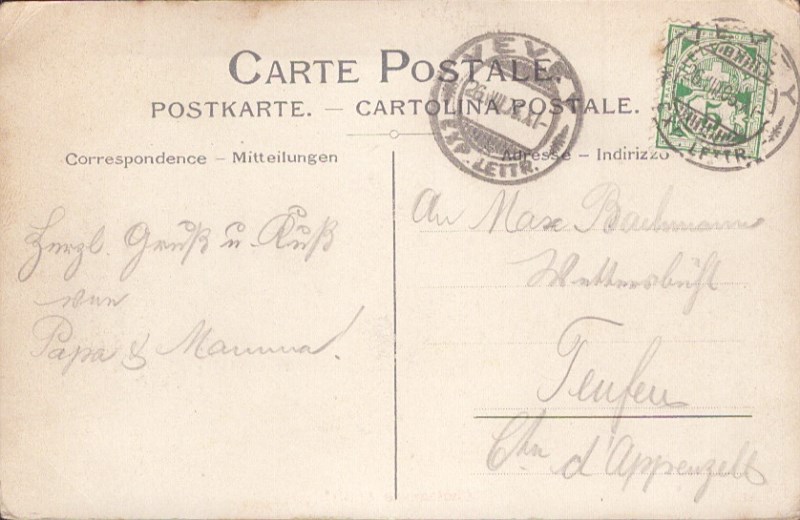 CARTE POSTALE.
POSTKARTE. – CARTOLINA POSTALE.
Correspondence – Mitteilungen
Adresse – Indirizzo
VEVEY
26.VII. XI–
EXP. LETTR.
VEVEY
EXP. LETTR.
Herzl. Gruß u. Kuß
von
Papa & Mamma!
An Max Bachmann
Wettersbühl
Teufen
Ctn d'Appenzell